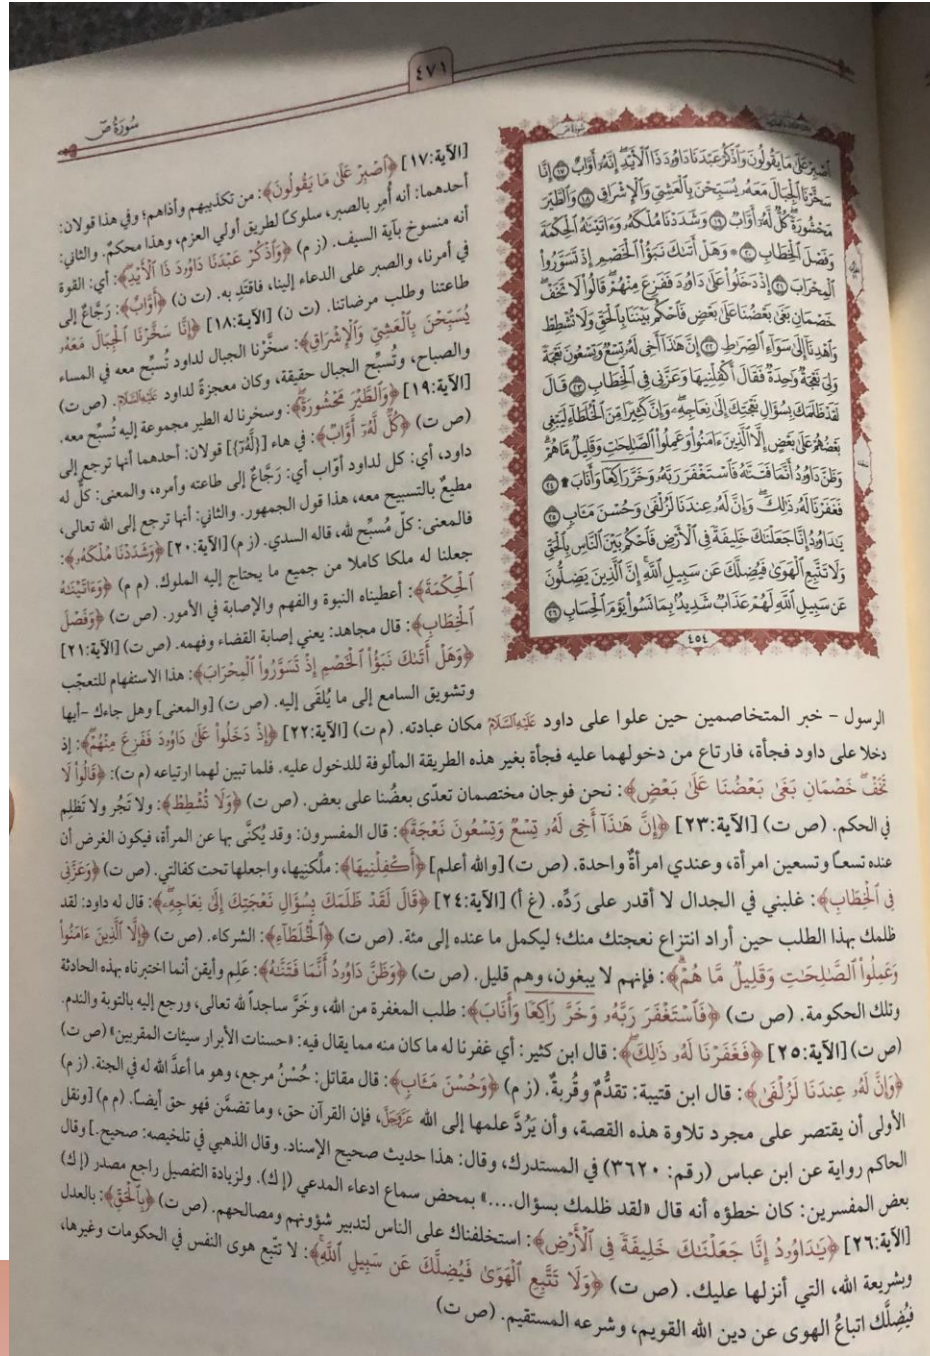 ٤٧١
سُورَةُ صٓ
سورة ص
اَصْبِرْ عَلَىٰ مَا يَقُولُونَ وَاَذْكُرْ عَبْدَنَا دَاوُۥدَ ذَا اَلْأَيْدِ إِنَّهُۥٓ أَوَّابٌ ١٧ إِنَّا
سَخَّرْنَا اَلْجِبَالَ مَعَهُۥ يُسَبِّحْنَ بِالْعَشِيِّ وَاَلْإِشْرَاقِ ١٨ وَاَلطَّيْرَ
مَحْشُورَةً كُلٌّ لَّهُۥٓ أَوَّابٌ ١٩ وَشَدَدْنَا مُلْكَهُۥ وَءَاتَيْنَٰهُ اَلْحِكْمَةَ
وَفَصْلَ اَلْخِطَابِ ٢٠ وَهَلْ أَتَىٰكَ نَبَؤُاْ اَلْخَصْمِ إِذْ تَسَوَّرُواْ
اَلْمِحْرَابَ ٢١ إِذْ دَخَلُواْ عَلَىٰ دَاوُۥدَ فَفَزِعَ مِنْهُمْ قَالُواْ لَا تَخَفْ
خَصْمَانِ بَغَىٰ بَعْضُنَا عَلَىٰ بَعْضٍ فَاَحْكُم بَيْنَنَا بِالْحَقِّ وَلَا تُشْطِطْ
وَاَهْدِنَآ إِلَىٰ سَوَآءِ اَلصِّرَٰطِ ٢٢ إِنَّ هَٰذَآ أَخِى لَهُۥ تِسْعٌ وَتِسْعُونَ نَعْجَةً
وَلِىَ نَعْجَةٌ وَٰحِدَةٌ فَقَالَ أَكْفِلْنِيهَا وَعَزَّنِى فِى اَلْخِطَابِ ٢٣ قَالَ
لَقَدْ ظَلَمَكَ بِسُؤَالِ نَعْجَتِكَ إِلَىٰ نِعَاجِهِۦ وَإِنَّ كَثِيرًا مِّنَ اَلْخُلَطَآءِ لَيَبْغِى
بَعْضُهُمْ عَلَىٰ بَعْضٍ إِلَّا اَلَّذِينَ ءَامَنُواْ وَعَمِلُواْ اَلصَّٰلِحَٰتِ وَقَلِيلٌ مَّا هُمْ
وَظَنَّ دَاوُۥدُ أَنَّمَا فَتَنَّٰهُ فَاَسْتَغْفَرَ رَبَّهُۥ وَخَرَّ رَاكِعًا وَأَنَابَ ۩ ٢٤
فَغَفَرْنَا لَهُۥ ذَٰلِكَ وَإِنَّ لَهُۥ عِندَنَا لَزُلْفَىٰ وَحُسْنَ مَـَٔابٍ ٢٥
يَٰدَاوُۥدُ إِنَّا جَعَلْنَٰكَ خَلِيفَةً فِى اَلْأَرْضِ فَاَحْكُم بَيْنَ اَلنَّاسِ بِالْحَقِّ
وَلَا تَتَّبِعِ اَلْهَوَىٰ فَيُضِلَّكَ عَن سَبِيلِ اَللَّهِ إِنَّ اَلَّذِينَ يَضِلُّونَ
عَن سَبِيلِ اَللَّهِ لَهُمْ عَذَابٌ شَدِيدٌۢ بِمَا نَسُواْ يَوْمَ اَلْحِسَابِ ٢٦
٤٥٤
[الآية:١٧] ﴿اَصْبِرْ عَلَىٰ مَا يَقُولُونَ﴾: من تكذيبهم وأذاهم؛ وفي هذا قولان:
أحدهما: أنه أُمِر بالصبر، سلوكاً لطريق أولي العزم، وهذا محكمٌ. والثاني:
أنه منسوخ بآية السيف. (ز م) ﴿وَاَذْكُرْ عَبْدَنَا دَاوُۥدَ ذَا اَلْأَيْدِ﴾: أي: القوة
في أمرنا، والصبر على الدعاء إلينا، فاقتَدِ به. (ت ن) ﴿أَوَّابٌ﴾: رَجَّاعٌ إلى
طاعتنا وطلب مرضاتنا. (ت ن) [الآية:١٨] ﴿إِنَّا سَخَّرْنَا اَلْجِبَالَ مَعَهُۥ
يُسَبِّحْنَ بِالْعَشِيِّ وَاَلْإِشْرَاقِ﴾: سخَّرْنا الجبال لداود تُسبِّح معه في المساء
والصباح، وتُسبِّح الجبال حقيقة، وكان معجزةً لداود عَلَيْهِ السَّلَامُ. (ص ت)
[الآية:١٩] ﴿وَاَلطَّيْرَ مَحْشُورَةً﴾: وسخرنا له الطير مجموعة إليه تُسبِّح معه.
(ص ت) ﴿كُلٌّ لَّهُۥٓ أَوَّابٌ﴾: في هاء [﴿لَّهُۥٓ﴾] قولان: أحدهما أنها ترجع إلى
داود، أي: كل لداود أوّاب أي: رَجَّاعٌ إلى طاعته وأمره، والمعنى: كلٌّ له
مطيعٌ بالتسبيح معه، هذا قول الجمهور. والثاني: أنها ترجع إلى الله تعالى،
فالمعنى: كلّ مُسبِّح لله، قاله السدي. (ز م) [الآية:٢٠] ﴿وَشَدَدْنَا مُلْكَهُۥ﴾:
جعلنا له ملكا كاملا من جميع ما يحتاج إليه الملوك. (م م) ﴿وَءَاتَيْنَٰهُ
اَلْحِكْمَةَ﴾: أعطيناه النبوة والفهم والإصابة في الأمور. (ص ت) ﴿وَفَصْلَ
اَلْخِطَابِ﴾: قال مجاهد: يعني إصابة القضاء وفهمه. (ص ت) [الآية:٢١]
﴿وَهَلْ أَتَىٰكَ نَبَؤُاْ اَلْخَصْمِ إِذْ تَسَوَّرُواْ اَلْمِحْرَابَ﴾: هذا الاستفهام للتعجّب
وتشويق السامع إلى ما يُلقَى إليه. (ص ت) [والمعنى] وهل جاءك -أيها
الرسول - خبر المتخاصمين حين علوا على داود عَلَيْهِ السَّلَامُ مكان عبادته. (م ت) [الآية:٢٢] ﴿إِذْ دَخَلُواْ عَلَىٰ دَاوُۥدَ فَفَزِعَ مِنْهُمْ﴾: إذ
دخلا على داود فجأة، فارتاع من دخولهما عليه فجأة بغير هذه الطريقة المألوفة للدخول عليه. فلما تبين لهما ارتياعه (م ت): ﴿قَالُواْ لَا
تَخَفْ خَصْمَانِ بَغَىٰ بَعْضُنَا عَلَىٰ بَعْضٍ﴾: نحن فوجان مختصمان تعدّى بعضُنا على بعض. (ص ت) ﴿وَلَا تُشْطِطْ﴾: ولا تَجُر ولا تَظلِم
في الحكم. (ص ت) [الآية:٢٣] ﴿إِنَّ هَٰذَآ أَخِى لَهُۥ تِسْعٌ وَتِسْعُونَ نَعْجَةً﴾: قال المفسرون: وقد يُكنَّى بها عن المرأة، فيكون الغرض أن
عنده تسعاً وتسعين امرأة، وعندي امرأةٌ واحدة. (ص ت) [والله أعلم] ﴿أَكْفِلْنِيهَا﴾: ملِّكنِيها، واجعلها تحت كفالتي. (ص ت) ﴿وَعَزَّنِى
فِى اَلْخِطَابِ﴾: غلبني في الجدال لا أقدر على رَدِّه. (غ أ) [الآية:٢٤] ﴿قَالَ لَقَدْ ظَلَمَكَ بِسُؤَالِ نَعْجَتِكَ إِلَىٰ نِعَاجِهِۦ﴾: قال له داود: لقد
ظلمك بهذا الطلب حين أراد انتزاع نعجتك منك؛ ليكمل ما عنده إلى مئة. (ص ت) ﴿اَلْخُلَطَآءِ﴾: الشركاء. (ص ت) ﴿إِلَّا اَلَّذِينَ ءَامَنُواْ
وَعَمِلُواْ اَلصَّٰلِحَٰتِ وَقَلِيلٌ مَّا هُمْ﴾: فإنهم لا يبغون، وهم قليل. (ص ت) ﴿وَظَنَّ دَاوُۥدُ أَنَّمَا فَتَنَّٰهُ﴾: عَلِم وأيقن أنما اختبرناه بهذه الحادثة
وتلك الحكومة. (ص ت) ﴿فَاَسْتَغْفَرَ رَبَّهُۥ وَخَرَّ رَاكِعًا وَأَنَابَ﴾: طلب المغفرة من الله، وخَرَّ ساجداً لله تعالى، ورجع إليه بالتوبة والندم.
(ص ت) [الآية:٢٥] ﴿فَغَفَرْنَا لَهُۥ ذَٰلِكَ﴾: قال ابن كثير: أي غفرنا له ما كان منه مما يقال فيه: «حسنات الأبرار سيئات المقربين» (ص ت)
﴿وَإِنَّ لَهُۥ عِندَنَا لَزُلْفَىٰ﴾: قال ابن قتيبة: تقدُّمٌ وقُربةٌ. (ز م) ﴿وَحُسْنَ مَـَٔابٍ﴾: قال مقاتل: حُسْنُ مرجع، وهو ما أعدَّ الله له في الجنة. (ز م)
الأولى أن يقتصر على مجرد تلاوة هذه القصة، وأن يَرُدَّ علمها إلى الله عَزَّوَجَلَّ، فإن القرآن حق، وما تضمَّن فهو حق أيضاً. (م م) [ونقل
الحاكم رواية عن ابن عباس (رقم: ٣٦٢٠) في المستدرك، وقال: هذا حديث صحيح الإسناد. وقال الذهبي في تلخيصه: صحيح.] وقال
بعض المفسرين: كان خطؤه أنه قال «لقد ظلمك بسؤال....» بمحض سماع ادعاء المدعي (إ ك). ولزيادة التفصيل راجع مصدر (إ ك)
[الآية:٢٦] ﴿يَٰدَاوُۥدُ إِنَّا جَعَلْنَٰكَ خَلِيفَةً فِى اَلْأَرْضِ﴾: استخلفناك على الناس لتدبير شؤونهم ومصالحهم. (ص ت) ﴿بِالْحَقِّ﴾: بالعدل
وبشريعة الله، التي أنزلها عليك. (ص ت) ﴿وَلَا تَتَّبِعِ اَلْهَوَىٰ فَيُضِلَّكَ عَن سَبِيلِ اَللَّهِ﴾: لا تتّبع هوى النفس في الحكومات وغيرها،
فيُضِلَّك اتباعُ الهوى عن دين الله القويم، وشرعه المستقيم. (ص ت)